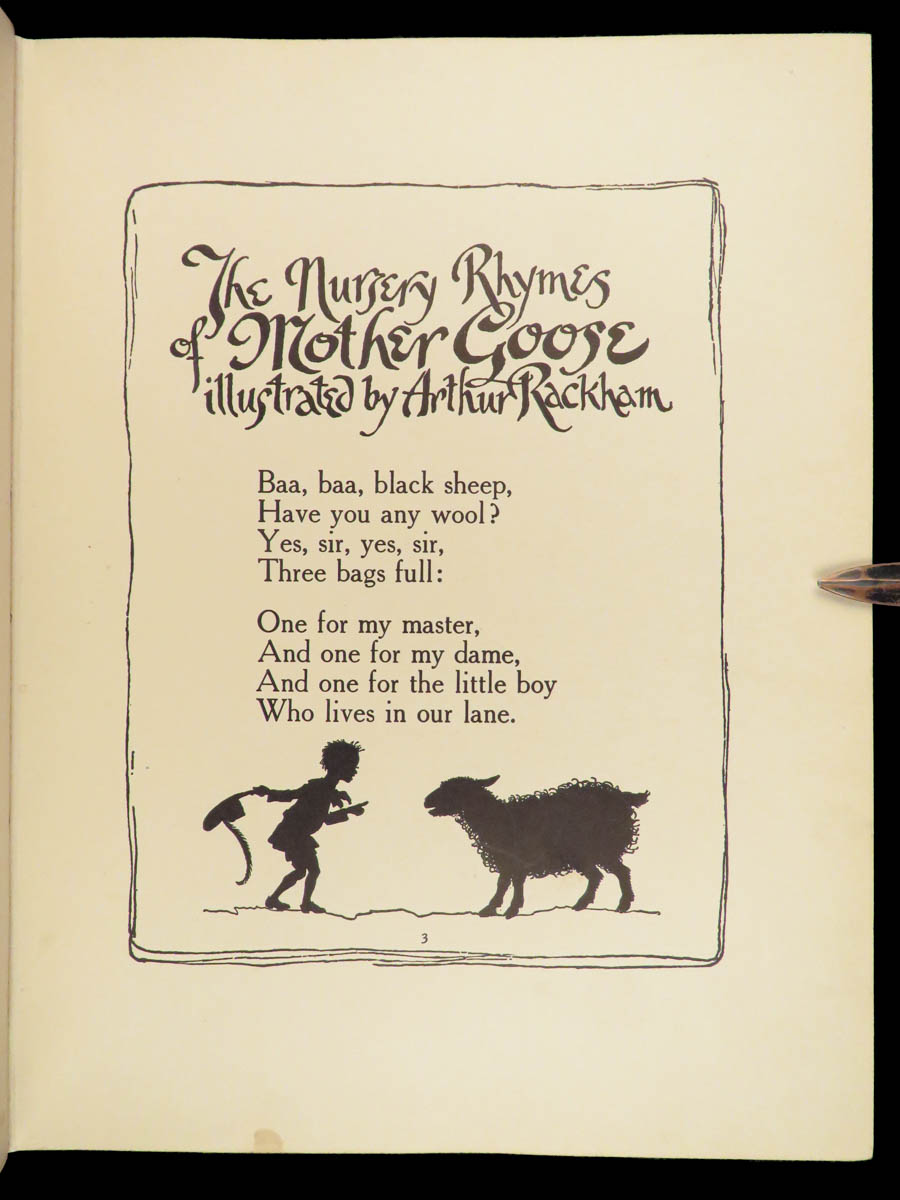 The Nursery Rhymes
of Mother Goose
illustrated by Arthur Rackham
Baa, baa, black sheep,
Have you any wool?
Yes, sir, yes, sir,
Three bags full:
One for my master,
And one for my dame,
And one for the little boy
Who lives in our lane.
3